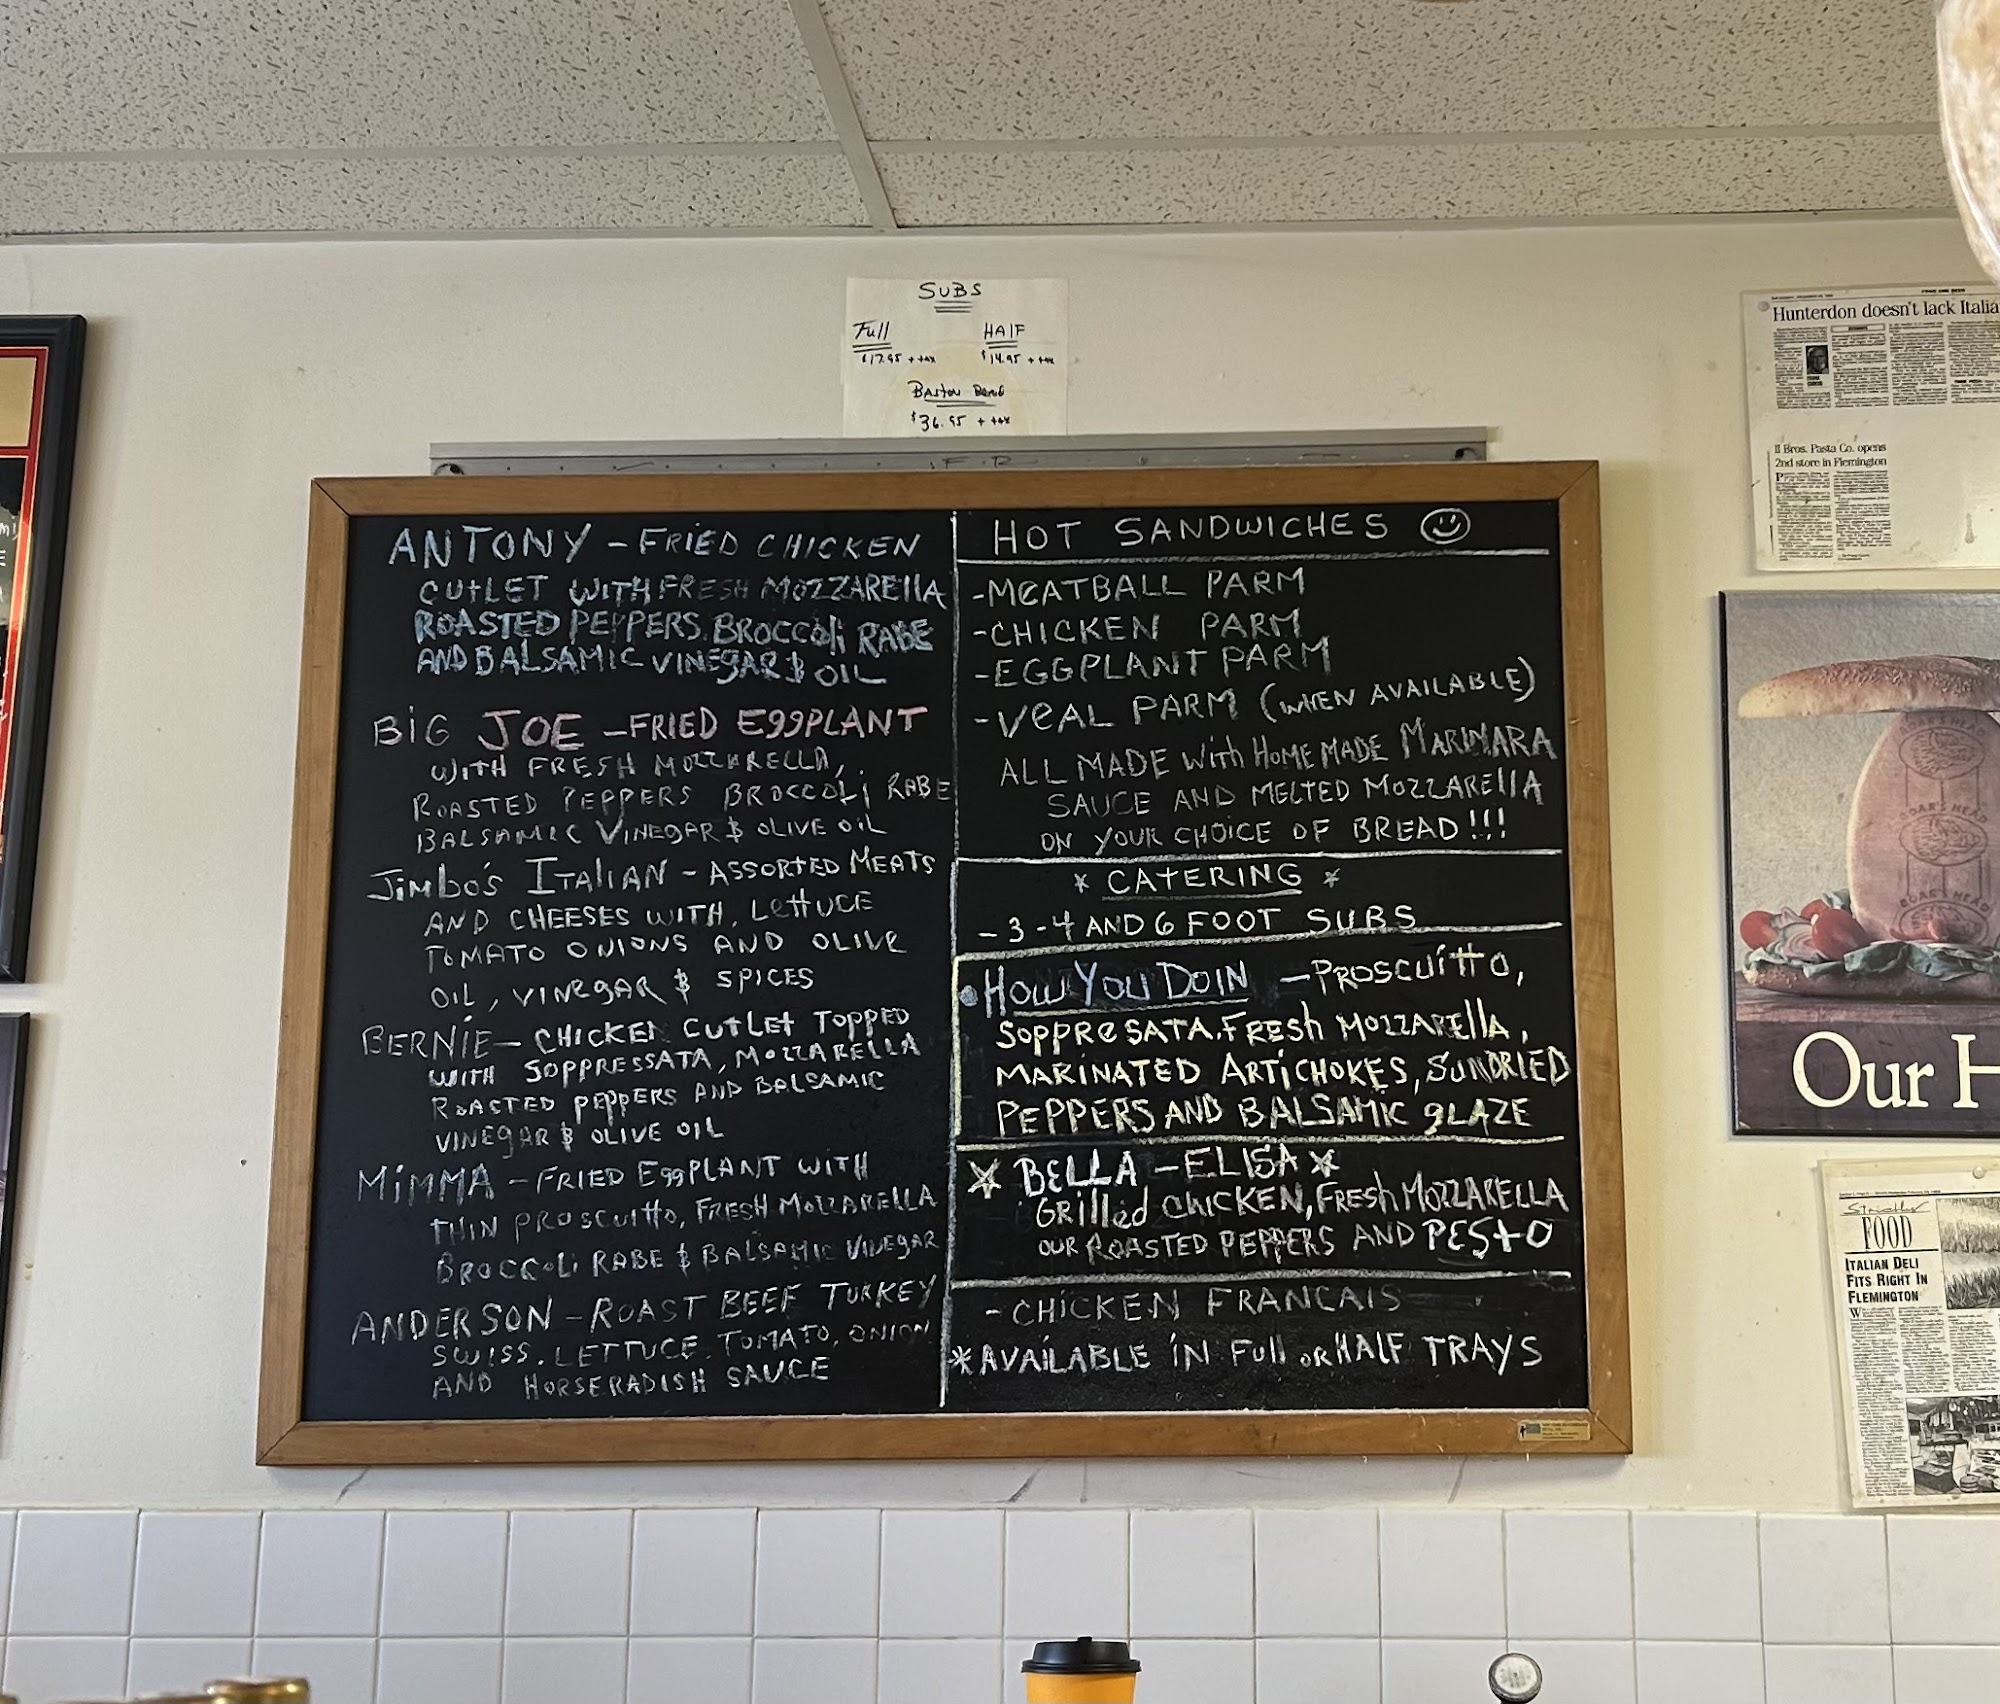 SUBS
Full HALF
$17.95 + tax $14.95 + tax
$36.95 + tax
ANTONY - FRIED CHICKEN
CUtLET WITH FRESH MOZZAREllA
ROASTED PEPPERS, BROCCOli RABE
AND BALSAMIC VINEgAR $ OIL
BiG JOE - FRIED E99PLANT
WITH FRESH MOZZARELLA,
ROASTED PEPPERS BROCCOLi RABE
BALSAMIC VINEGAR $ OLIVE OIL
JiMbo's ITAliAN - ASSORTED MEATS
AND CHEESES WITH, LEttUCE
TOMATO ONIONS AND OLIVE
OIL, VINEgAR $ SPICES
BERNIE - CHICKEN CUtLEt TOPPED
WITH SOPPRESSATA, MOZZARELLA
ROASTED PEPPERS AND BALSAMIC
VINEGAR $ OLIVE OIL
MiMMA - FRIED EggPLANT WITH
THIN PROSCUITTO, FRESH MOZZARELLA
BROCCOLi RABE $ BALSAMIC VINEGAR
ANDERSON - ROAST BEEF TURKEY
SWISS, LETTUCE, TOMATO, ONION
AND HORSERADISH SAUCE
HOT SANDWICHES
- MEATBALL PARM
- CHICKEN PARM
- EGGPLANT PARM
- VEAL PARM (WHEN AVAILABLE)
ALL MADE With HOMEMADE MARINARA
SAUCE AND MELTED MOZZARELLA
ON YOUR CHOICE OF BREAD!!!
* CATERING *
- 3 - 4 AND 6 FOOT SUBS
• HOW YOU DOIN - PROSCUITTO,
SOPPRESATA, FRESH MOZZARElla,
MARINATED ARTiCHOKES, SUNDRIED
PEPPERS AND BALSAMIC gLAZE
☆ BELLA - ELISA ☆
GRilled CHICKEN, FRESH MOZZARELLA
OUR ROASTED PEPPERS AND PESTO
- CHICKEN FRANCAIS
* AVAiLABLE iN Full OR HALF TRAYS
Hunterdon doesn't lack Italia
Il Bros. Pasta Co. opens
2nd store in Flemington
BOAR'S HEAD
BOAR'S HEAD
Our H
FOOD
ITALIAN DELI
FITS RIGHT IN
FLEMINGTON